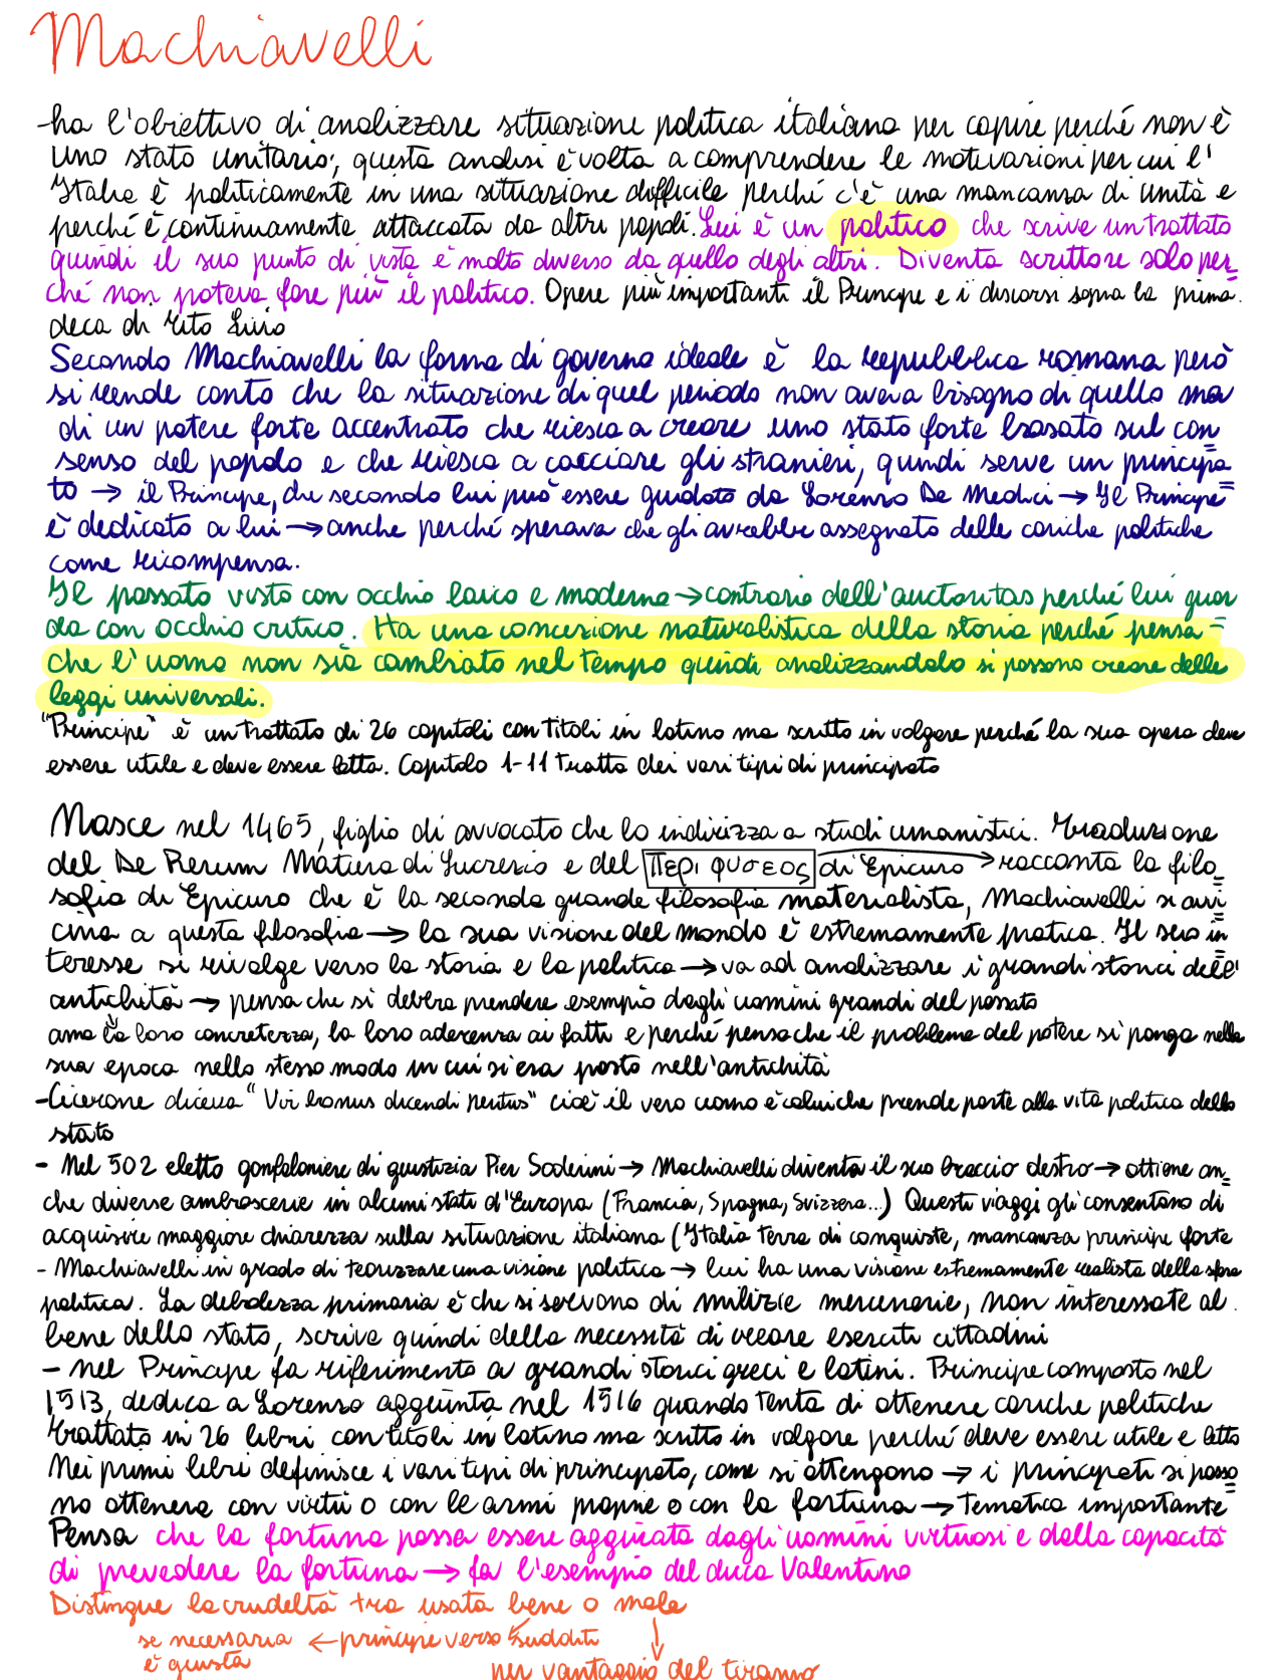 Machiavelli
-ha l'obiettivo di analizzare situazione politica italiana per capire perché non è
uno stato unitario, questa analisi è volta a comprendere le motivazioni per cui l'
Italia è politicamente in una situazione difficile perché c'è una mancanza di unità e
perché è continuamente attaccata da altri popoli. Lui è un politico che scrive un trattato
quindi il suo punto di vista è molto diverso da quello degli altri. Diventa scrittore solo per=
ché non poteva fare più il politico. Opere più importanti il Principe e i discorsi sopra la prima
deca di Tito Livio
Secondo Machiavelli la forma di governo ideale è la repubblica romana però
si rende conto che la situazione di quel periodo non aveva bisogno di quello ma
di un potere forte accentrato che riesca a creare uno stato forte basato sul con=
senso del popolo e che riesca a cacciare gli stranieri, quindi serve un principa=
to → il Principe, che secondo lui può essere guidato da Lorenzo De Medici → Il Principe
è dedicato a lui → anche perché sperava che gli avrebbe assegnato delle cariche politiche
come ricompensa.
Il passato visto con occhio laico e moderno → contrario dell'auctoritas perché lui guar
da con occhio critico. Ha una concezione naturalistica della storia perché pensa
che l'uomo non sia cambiato nel tempo quindi analizzandolo si possono creare delle
leggi universali.
"Principe" è un trattato di 26 capitoli con titoli in latino ma scritto in volgare perché la sua opera deve
essere utile e deve essere letta. Capitolo 1-11 tratta dei vari tipi di principato
Nasce nel 1465, figlio di avvocato che lo indirizza a studi umanistici. Traduzione
del De Rerum Natura di Lucrezio e del περι φυσεος di Epicuro → racconta la filo=
sofia di Epicuro che è la seconda grande filosofia materialista, Machiavelli si avvi=
cina a questa filosofia → la sua visione del mondo è estremamente pratica. Il suo in=
teresse si rivolge verso la storia e la politica → va ad analizzare i grandi storici dell'
antichità → pensa che si debba prendere esempio dagli uomini grandi del passato
ama la loro concretezza, la loro aderenza ai fatti e perché pensa che il problema del potere si ponga nella
sua epoca nello stesso modo in cui si era posto nell'antichità
-Cicerone diceva "Vir bonus dicendi peritus" cioè il vero uomo è colui che prende parte alla vita politica dello
stato
- Nel 502 eletto gonfaloniere di giustizia Pier Soderini → Machiavelli diventa il suo braccio destro → ottiene an=
che diverse ambascerie in alcuni stati d'Europa (Francia, Spagna, Svizzera...) Questi viaggi gli consentono di
acquisire maggiore chiarezza sulla situazione italiana (Italia terra di conquiste, mancanza principe forte
- Machiavelli in grado di teorizzare una visione politica → lui ha una visione estremamente realista della sfera
politica. La debolezza primaria è che si servono di milizie mercenarie, non interessate al
bene dello stato, scrive quindi della necessità di creare eserciti cittadini
- nel Principe fa riferimento a grandi storici greci e latini. Principe composto nel
1513, dedica a Lorenzo aggiunta nel 1516 quando tenta di ottenere cariche politiche
trattato in 26 libri con titoli in latino ma scritto in volgare perché deve essere utile e letto
Nei primi libri definisce i vari tipi di principato, come si ottengono → i principati si posso=
no ottenere con virtù o con le armi proprie o con la fortuna → Tematica importante
Pensa che la fortuna possa essere aggirata dagli uomini virtuosi e dalla capacità
di prevedere la fortuna → fa l'esempio del duca Valentino
Distingue la crudeltà tra usata bene o male
se necessaria ← principe verso sudditi
è giusta
per vantaggio del tiranno